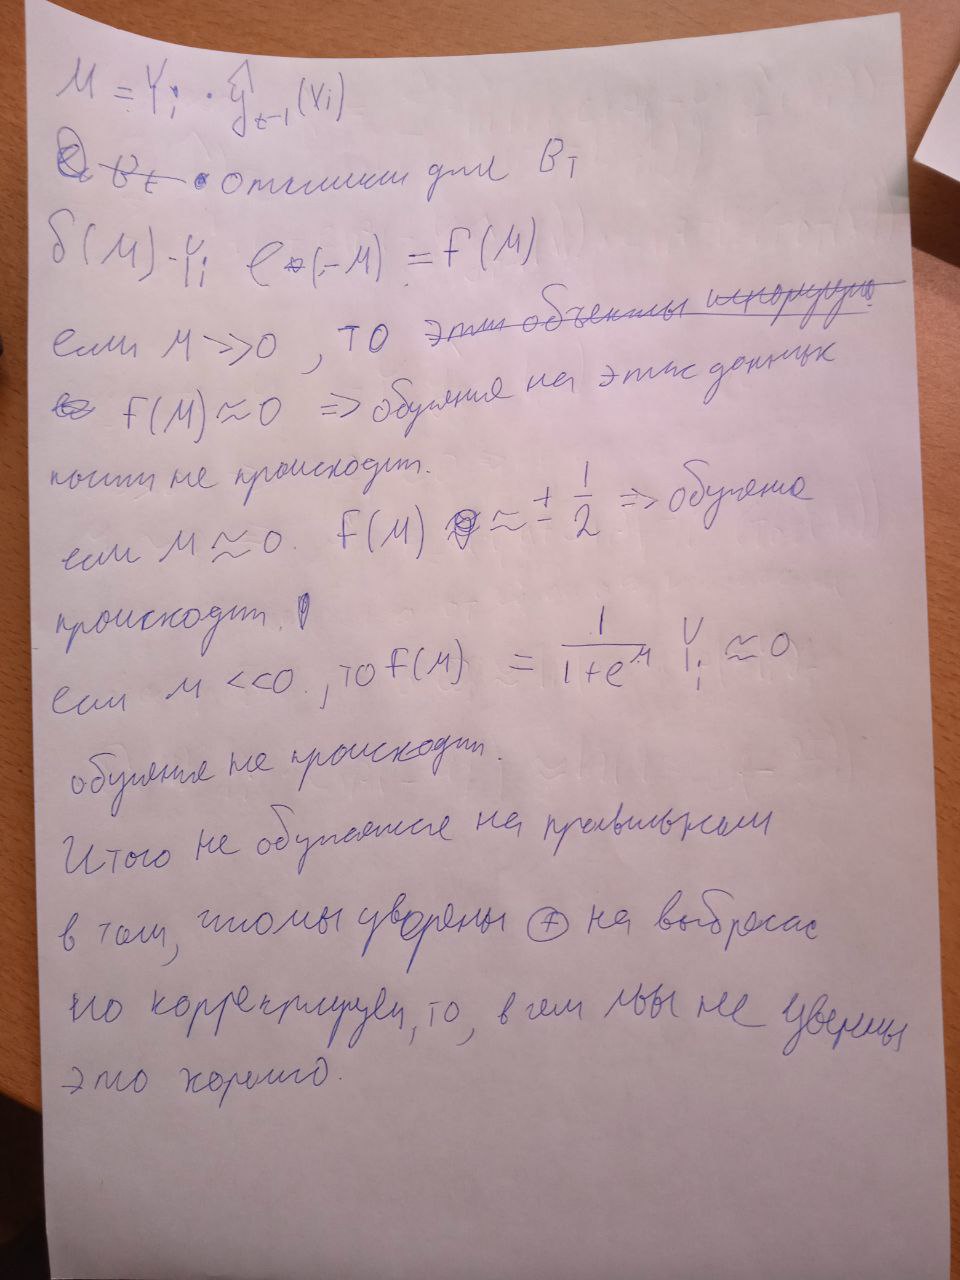 M = Y_i · ŷ_{t-1}(x_i)
отклики для B_T
б(M) · Y_i (-M) = F(M)
если M >> 0, то эти объекты игнорирую
F(M) ≈ 0 => обучения на этих данных
почти не происходит.
если M ≈ 0. F(M) ≈ ± 1/2 => обучение
происходит.
если M << 0, то F(M) = 1/(1+e^M) Y_i ≈ 0
обучения не происходит.
Итого не обучаемся на правильном
в том, что мы уверены + на выбросах
но корректируем, то, в чем мы не уверены
это хорошо.